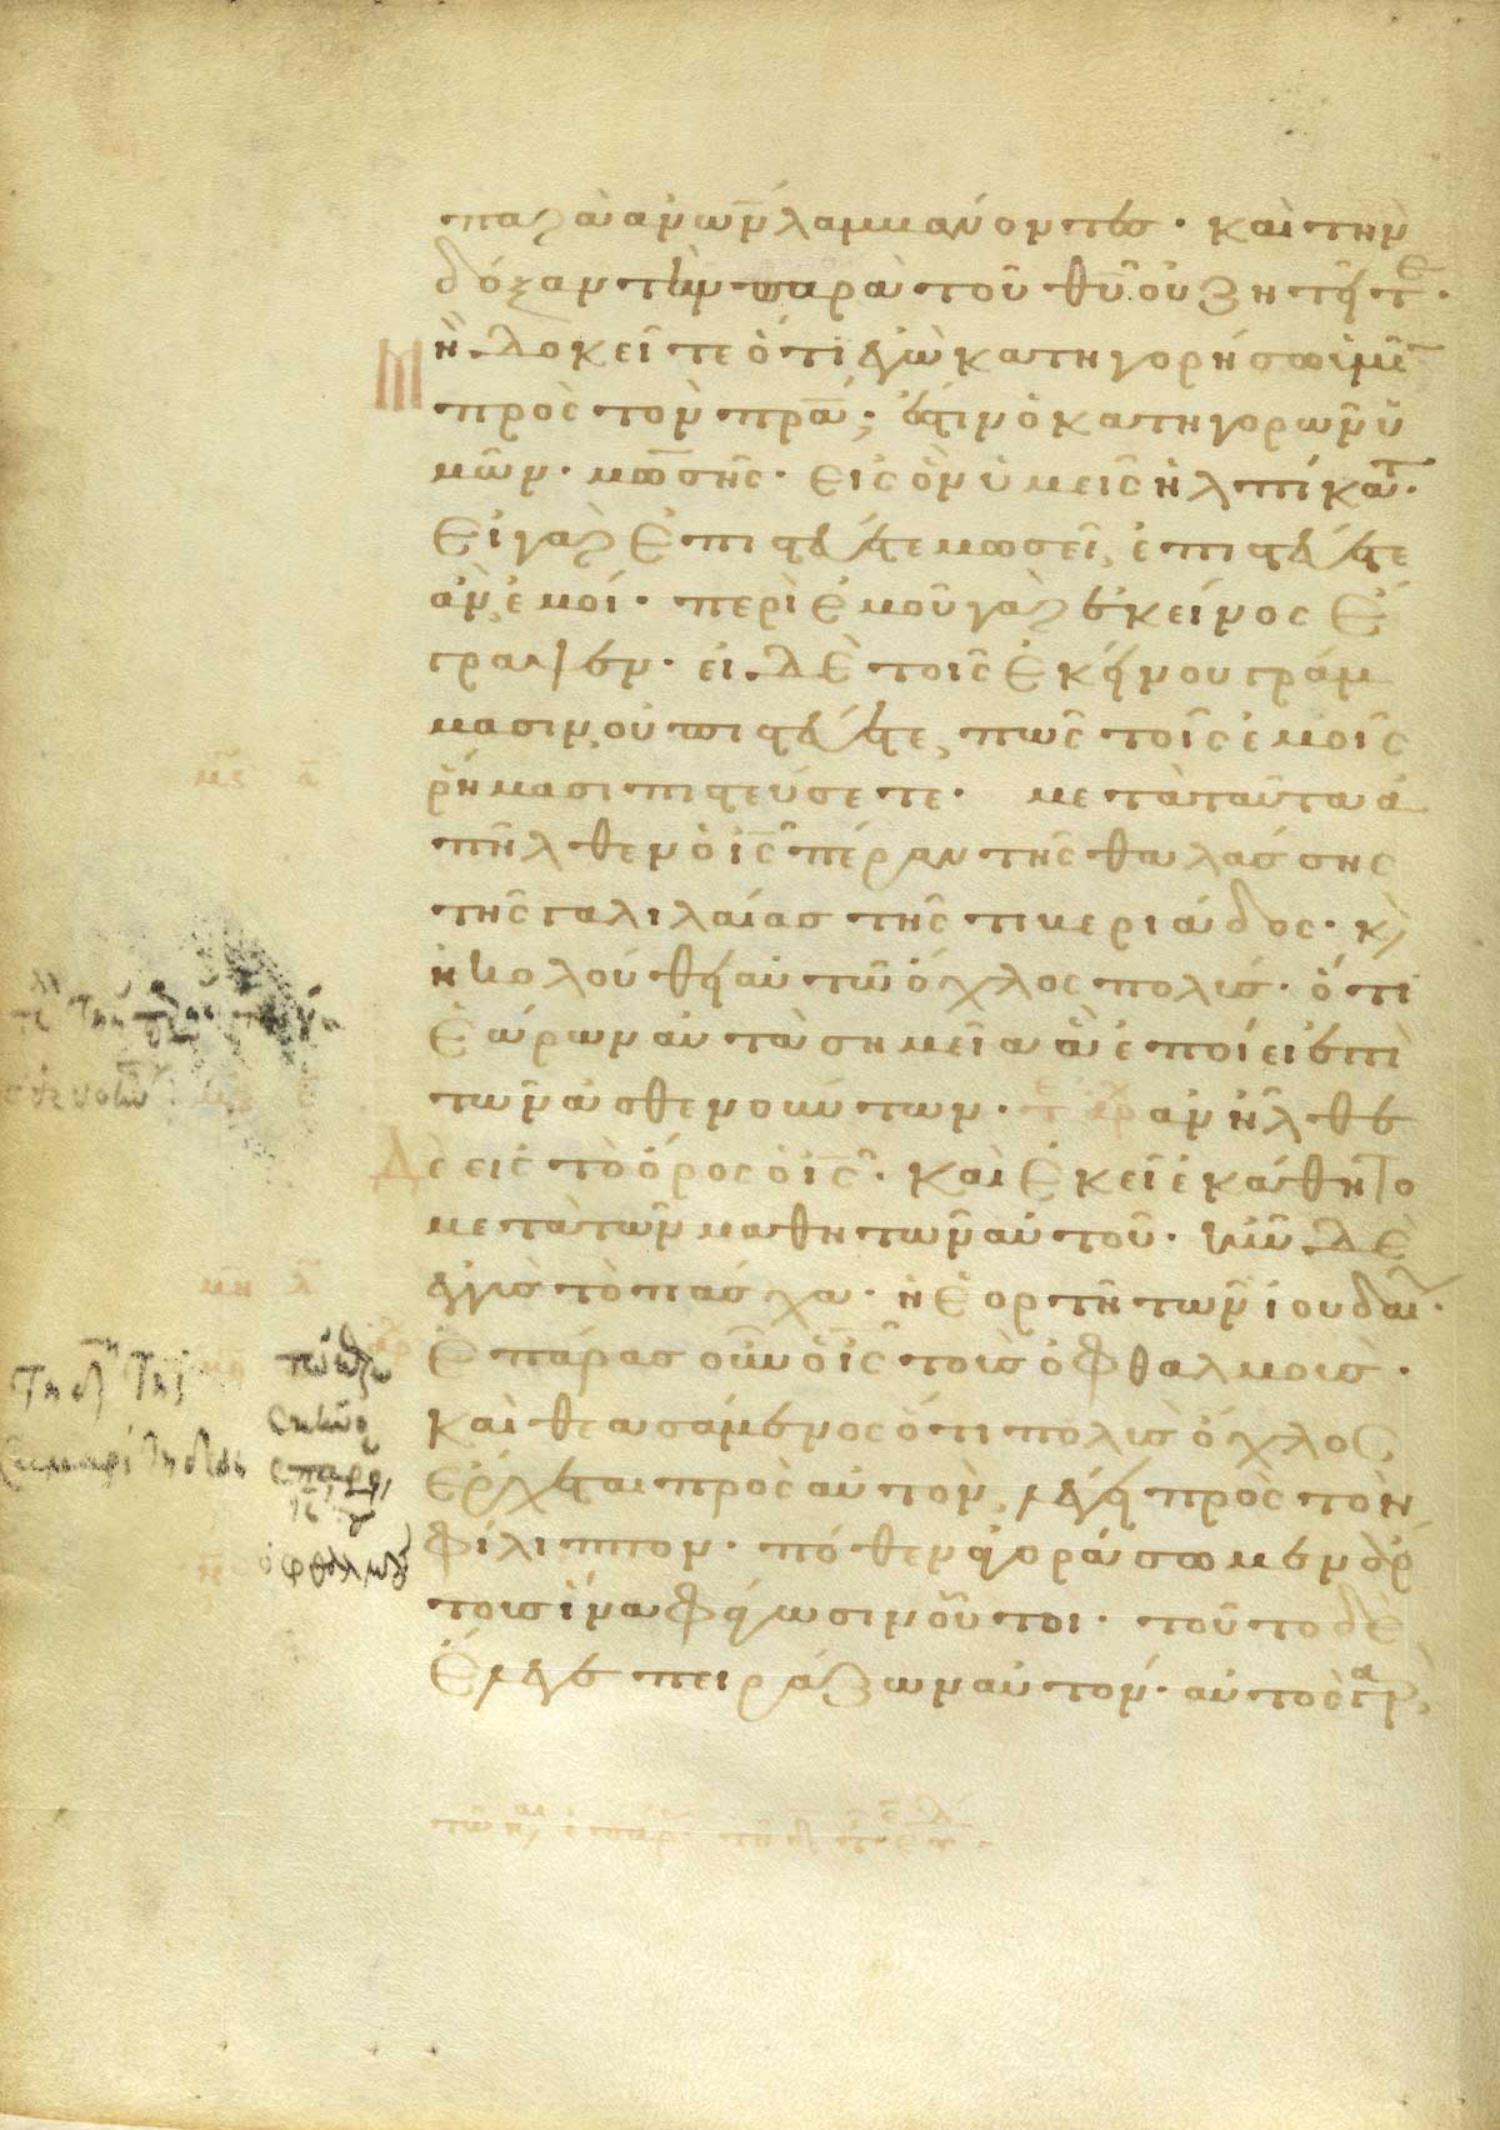 παρὰ ἀνων λαμβάνοντες· καὶ τὴν
δόξαν τὴν παρὰ τοῦ θυ οὐ ζητεῖτε·
Μὴ δοκεῖτε ὅτι ἐγὼ κατηγορήσω ὑμῶ
πρὸς τὸν πρα; ἔστιν ὁ κατηγορῶν ὑ
μῶν· μωσῆς· εἰς ὃν ὑμεῖς ἠλπίκατ·
Εἰ γὰρ ἐπιστεύετε μωσεῖ, ἐπιστεύετε
ἂν, ἐμοί· περὶ ἐμοῦ γὰρ ἐκεῖνος ἔ
γραψεν· εἰ δὲ τοῖς ἐκείνου γράμ
μασιν, οὐ πιστεύετε, πῶς τοῖς ἐμοῖς
ῥήμασι πιστεύσετε· μετὰ ταῦτα ἀ
πῆλθεν ὁ ις πέραν τῆς θαλάσσης
τῆς γαλιλαίας τῆς τιβεριάδος· κ
ἠκολούθει αὐτῶ ὄχλος πολύς· ὅτι
ἑώρων αὐτοῦ τὰ σημεῖα ἃ ἐποίει ἐπὶ
τῶν ἀσθενούντων· ἀνῆλθε
Δὲ εἰς τὸ ὄρος ὁ ις· καὶ ἐκεῖ ἐκάθητο
μετὰ τῶν μαθητῶν αὐτοῦ· ἦν δὲ
ἐγγὺς τὸ πάσχα· ἡ ἑορτὴ τῶν ἰουδαι·
Ἐπάρας οὖν ὁ ις τοὺς ὀφθαλμοὺς·
καὶ θεασάμενος ὅτι πολὺς ὄχλος
ἔρχεται πρὸς αὐτὸν, λέγει πρὸς τὸν
φίλιππον· πόθεν ἀγοράσωμεν ἄρ
τους ἵνα φάγωσιν οὗτοι· τοῦτο δὲ
ἔλεγε πειράζων αὐτόν· αὐτὸς γὰρ,